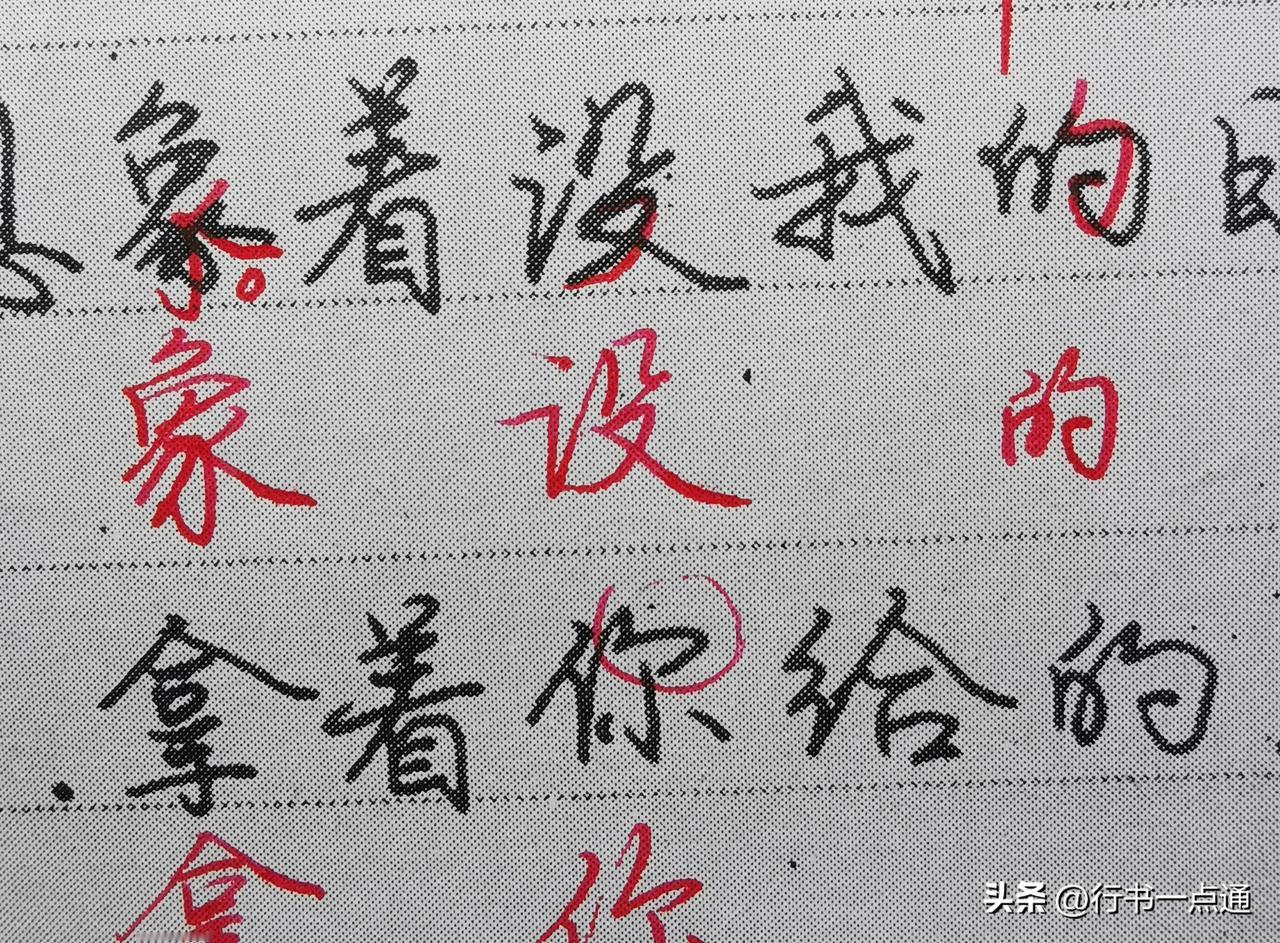 象着设我的
象设的
拿着你给的
拿你
头条 @行书一点通